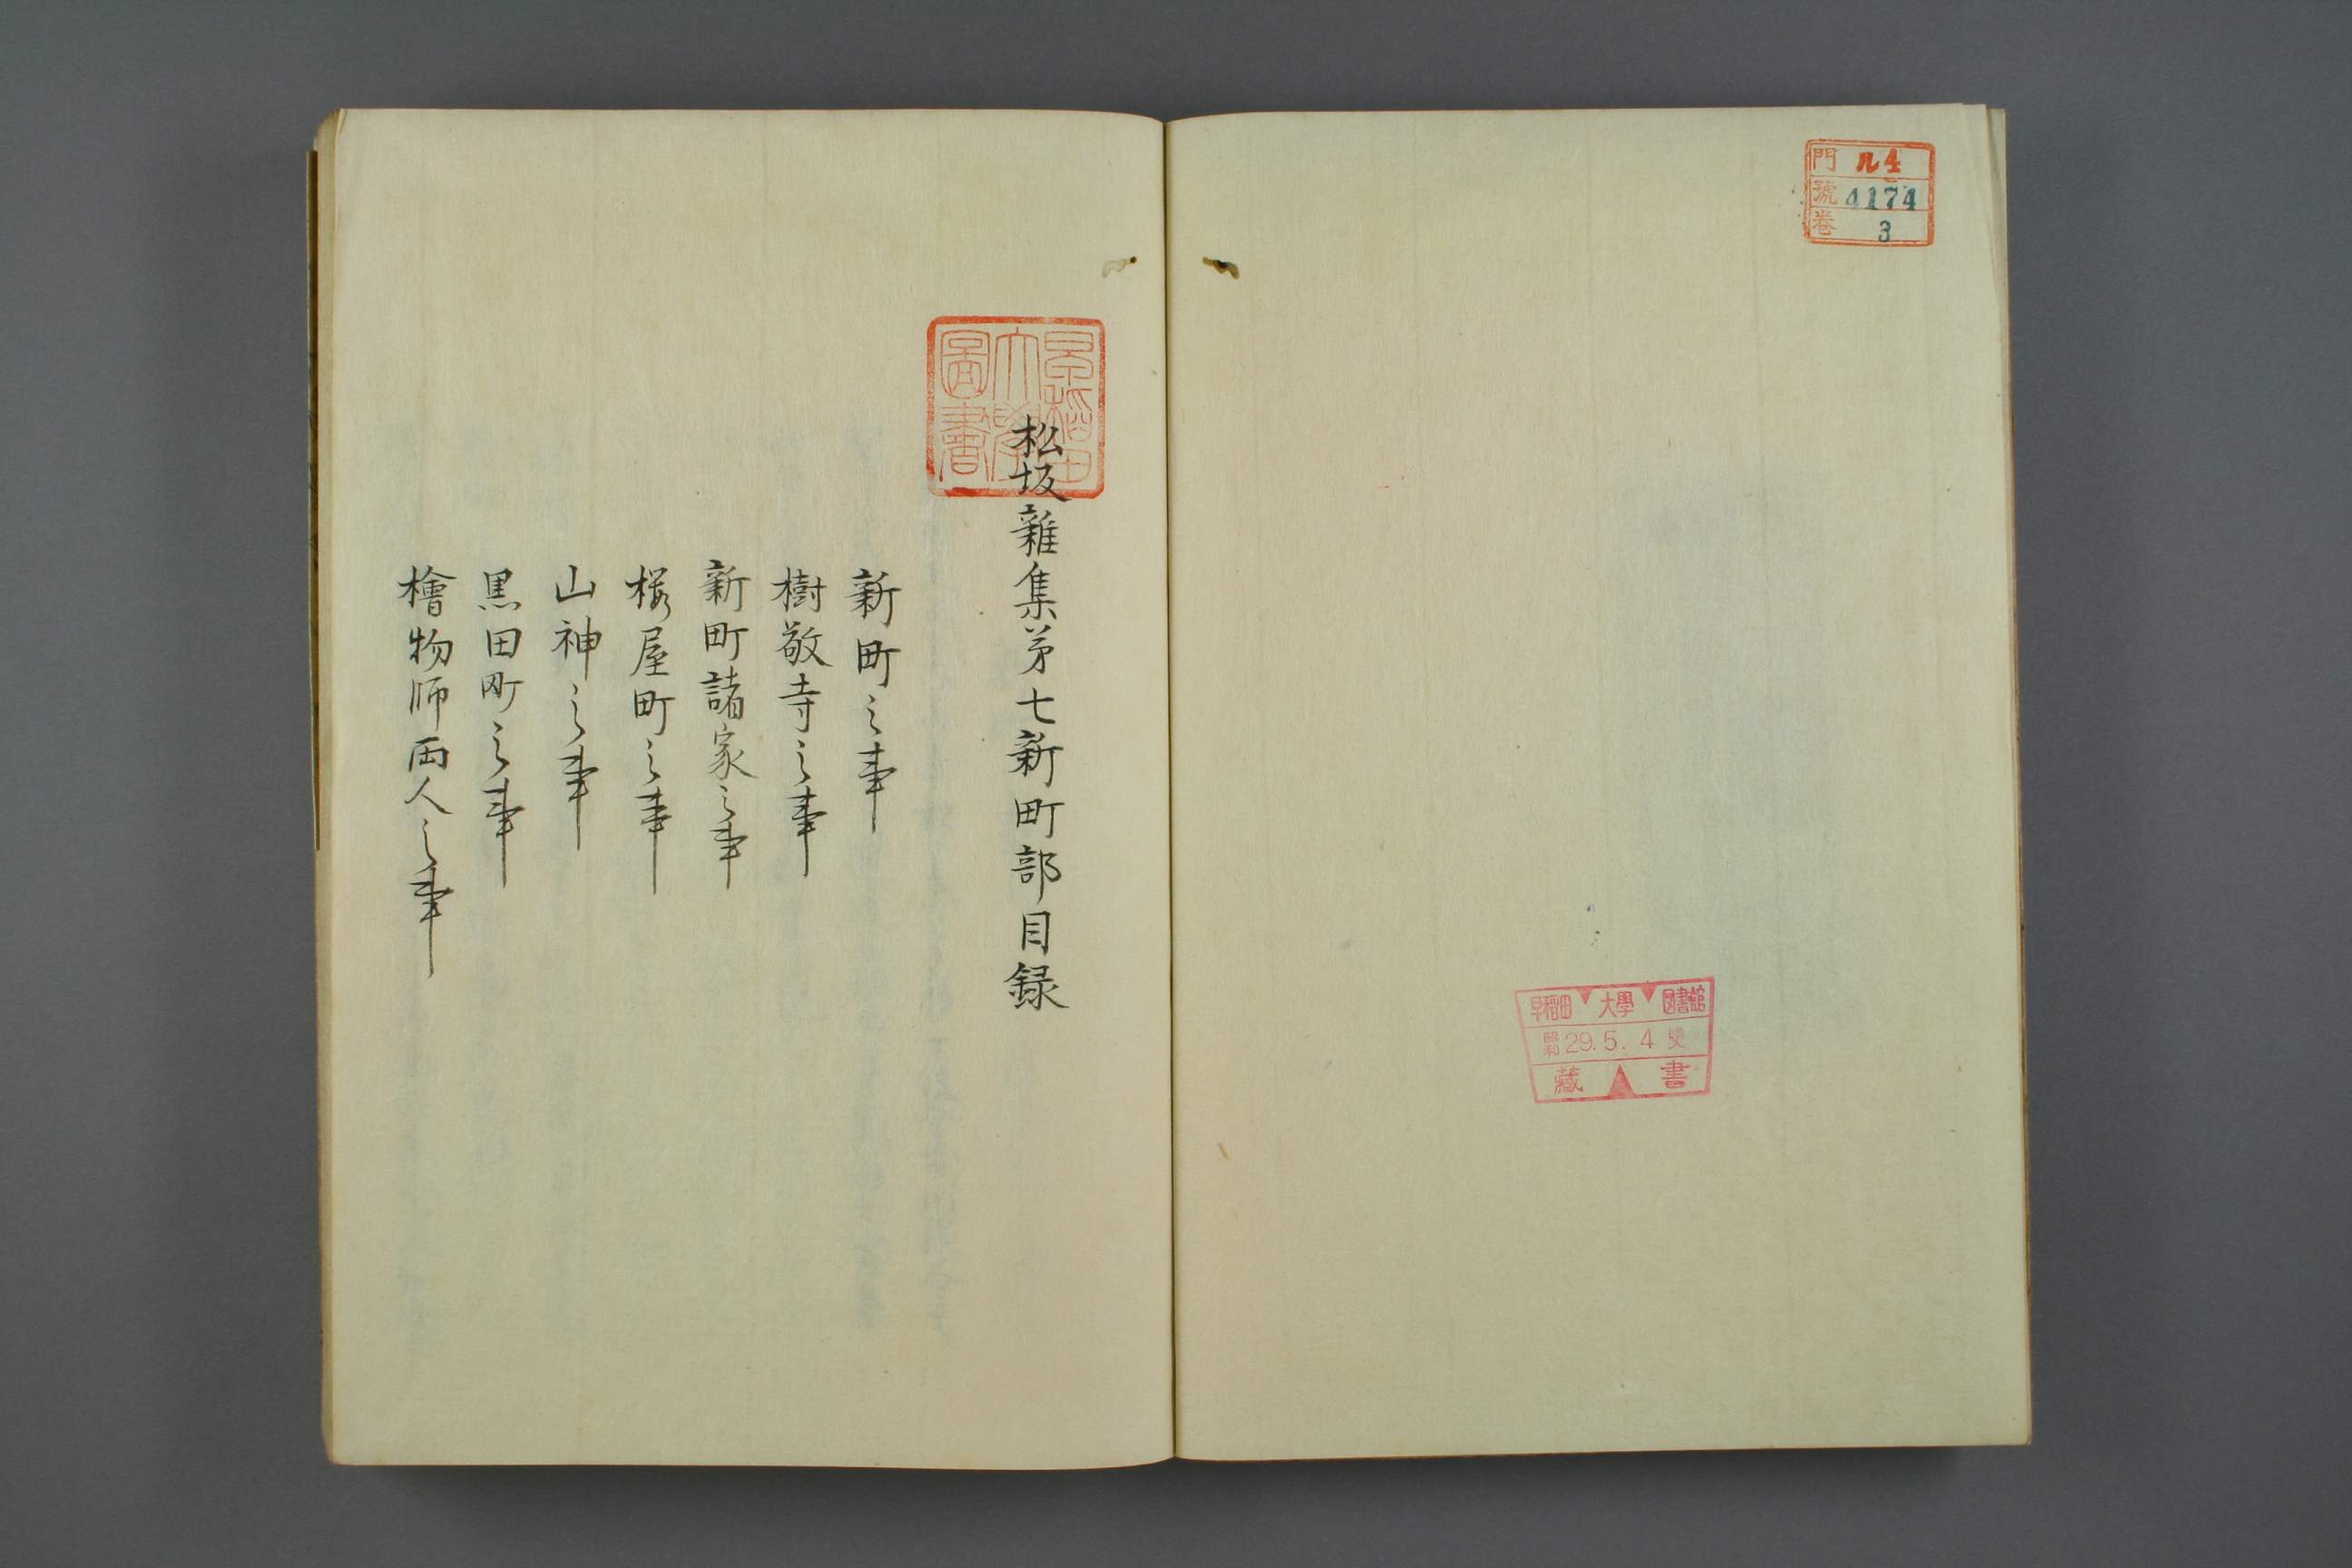 門 ル4
號 4174
卷 3
早稲田 大學 図書館
昭和 29.5.4 受
藏 書
早稲田大學圖書
松坂雜集第七新町部目録
新町之事
樹敬寺之事
新町諸家之事
桜屋町之事
山神之事
黒田町之事
檜物師両人之事